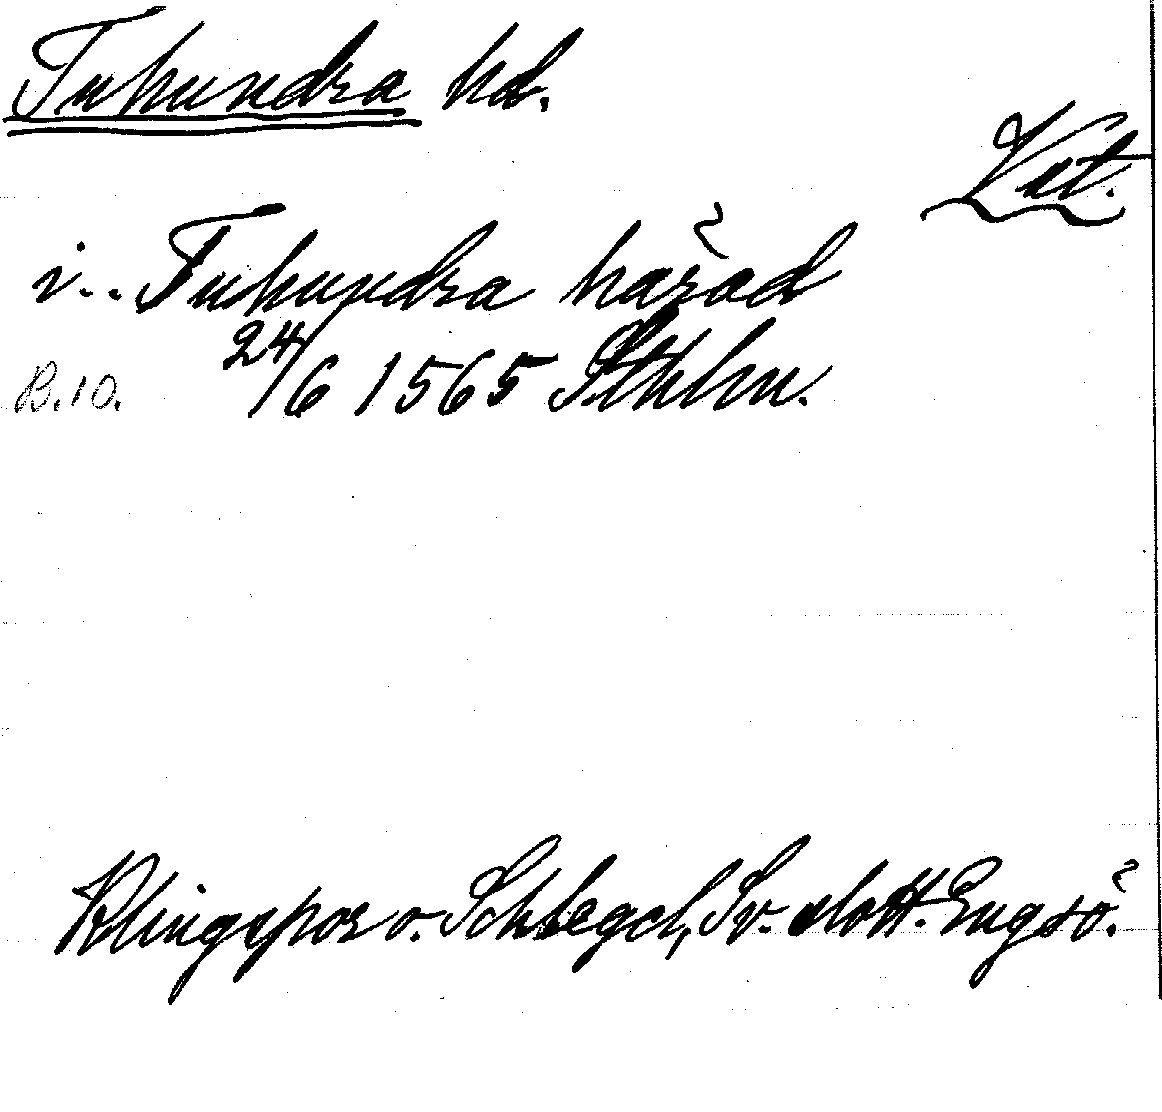 Tuhundra hd.
Vst.
i.. Tuhundra härad
B.10. 24/6 1565 Sthlm.
Klingspor o. Schlegel, Sv. slott. Engsö.